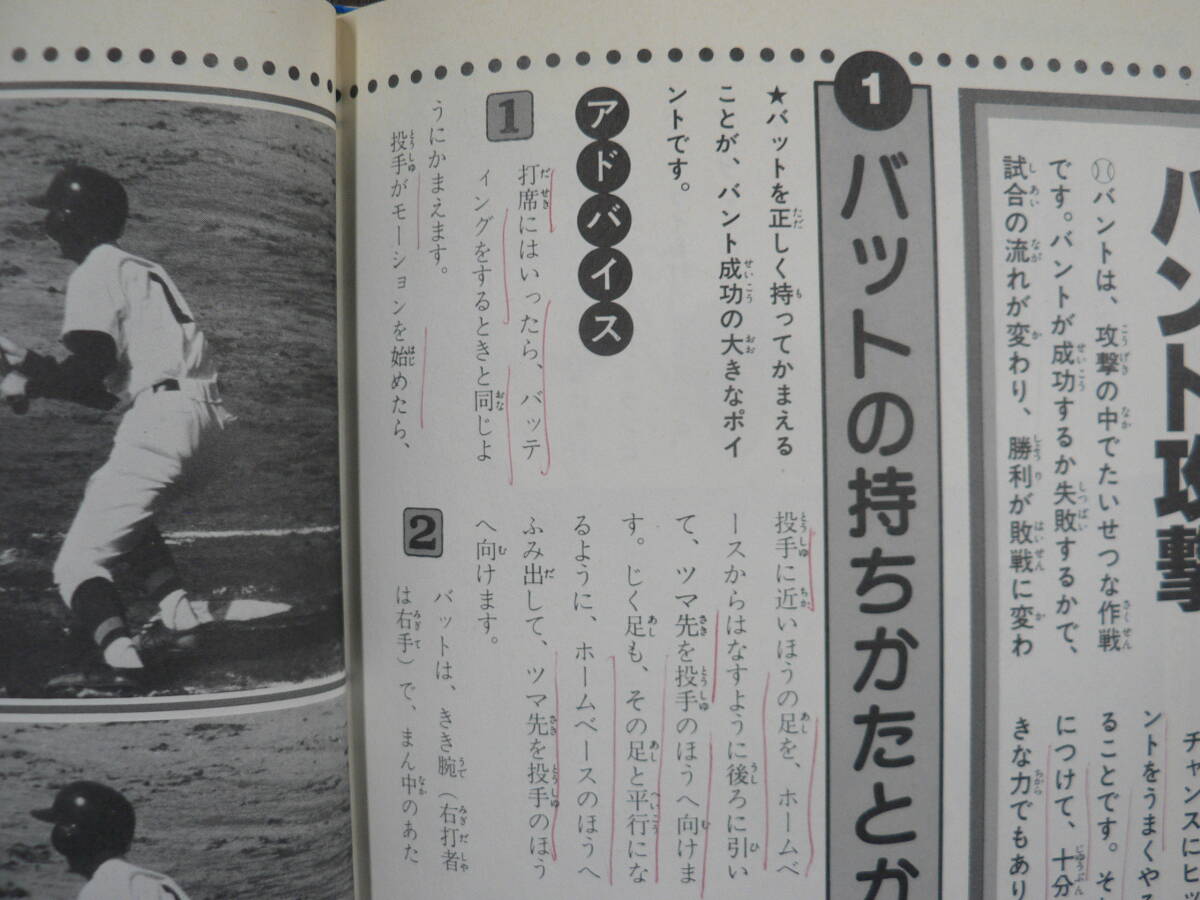 バント攻撃
バントは、攻撃の中でたいせつな作戦
です。バントが成功するか失敗するかで、
試合の流れが変わり、勝利が敗戦に変わ
チャンスにヒッ
ントをうまくやる
ることです。そ
につけて、十分
きな力でもあり
1
バットの持ちかたとか
★バットを正しく持ってかまえる
ことが、バント成功の大きなポイ
ントです。
アドバイス
1
打席にはいったら、バッテ
ィングをするときと同じよ
うにかまえます。
投手がモーションを始めたら、
投手に近いほうの足を、ホームベ
ースからはなすように後ろに引い
て、ツマ先を投手のほうへ向けま
す。じく足も、その足と平行にな
るように、ホームベースのほうへ
ふみ出して、ツマ先を投手のほう
へ向けます。
2
バットは、きき腕（右打者
は右手）で、まん中のあた